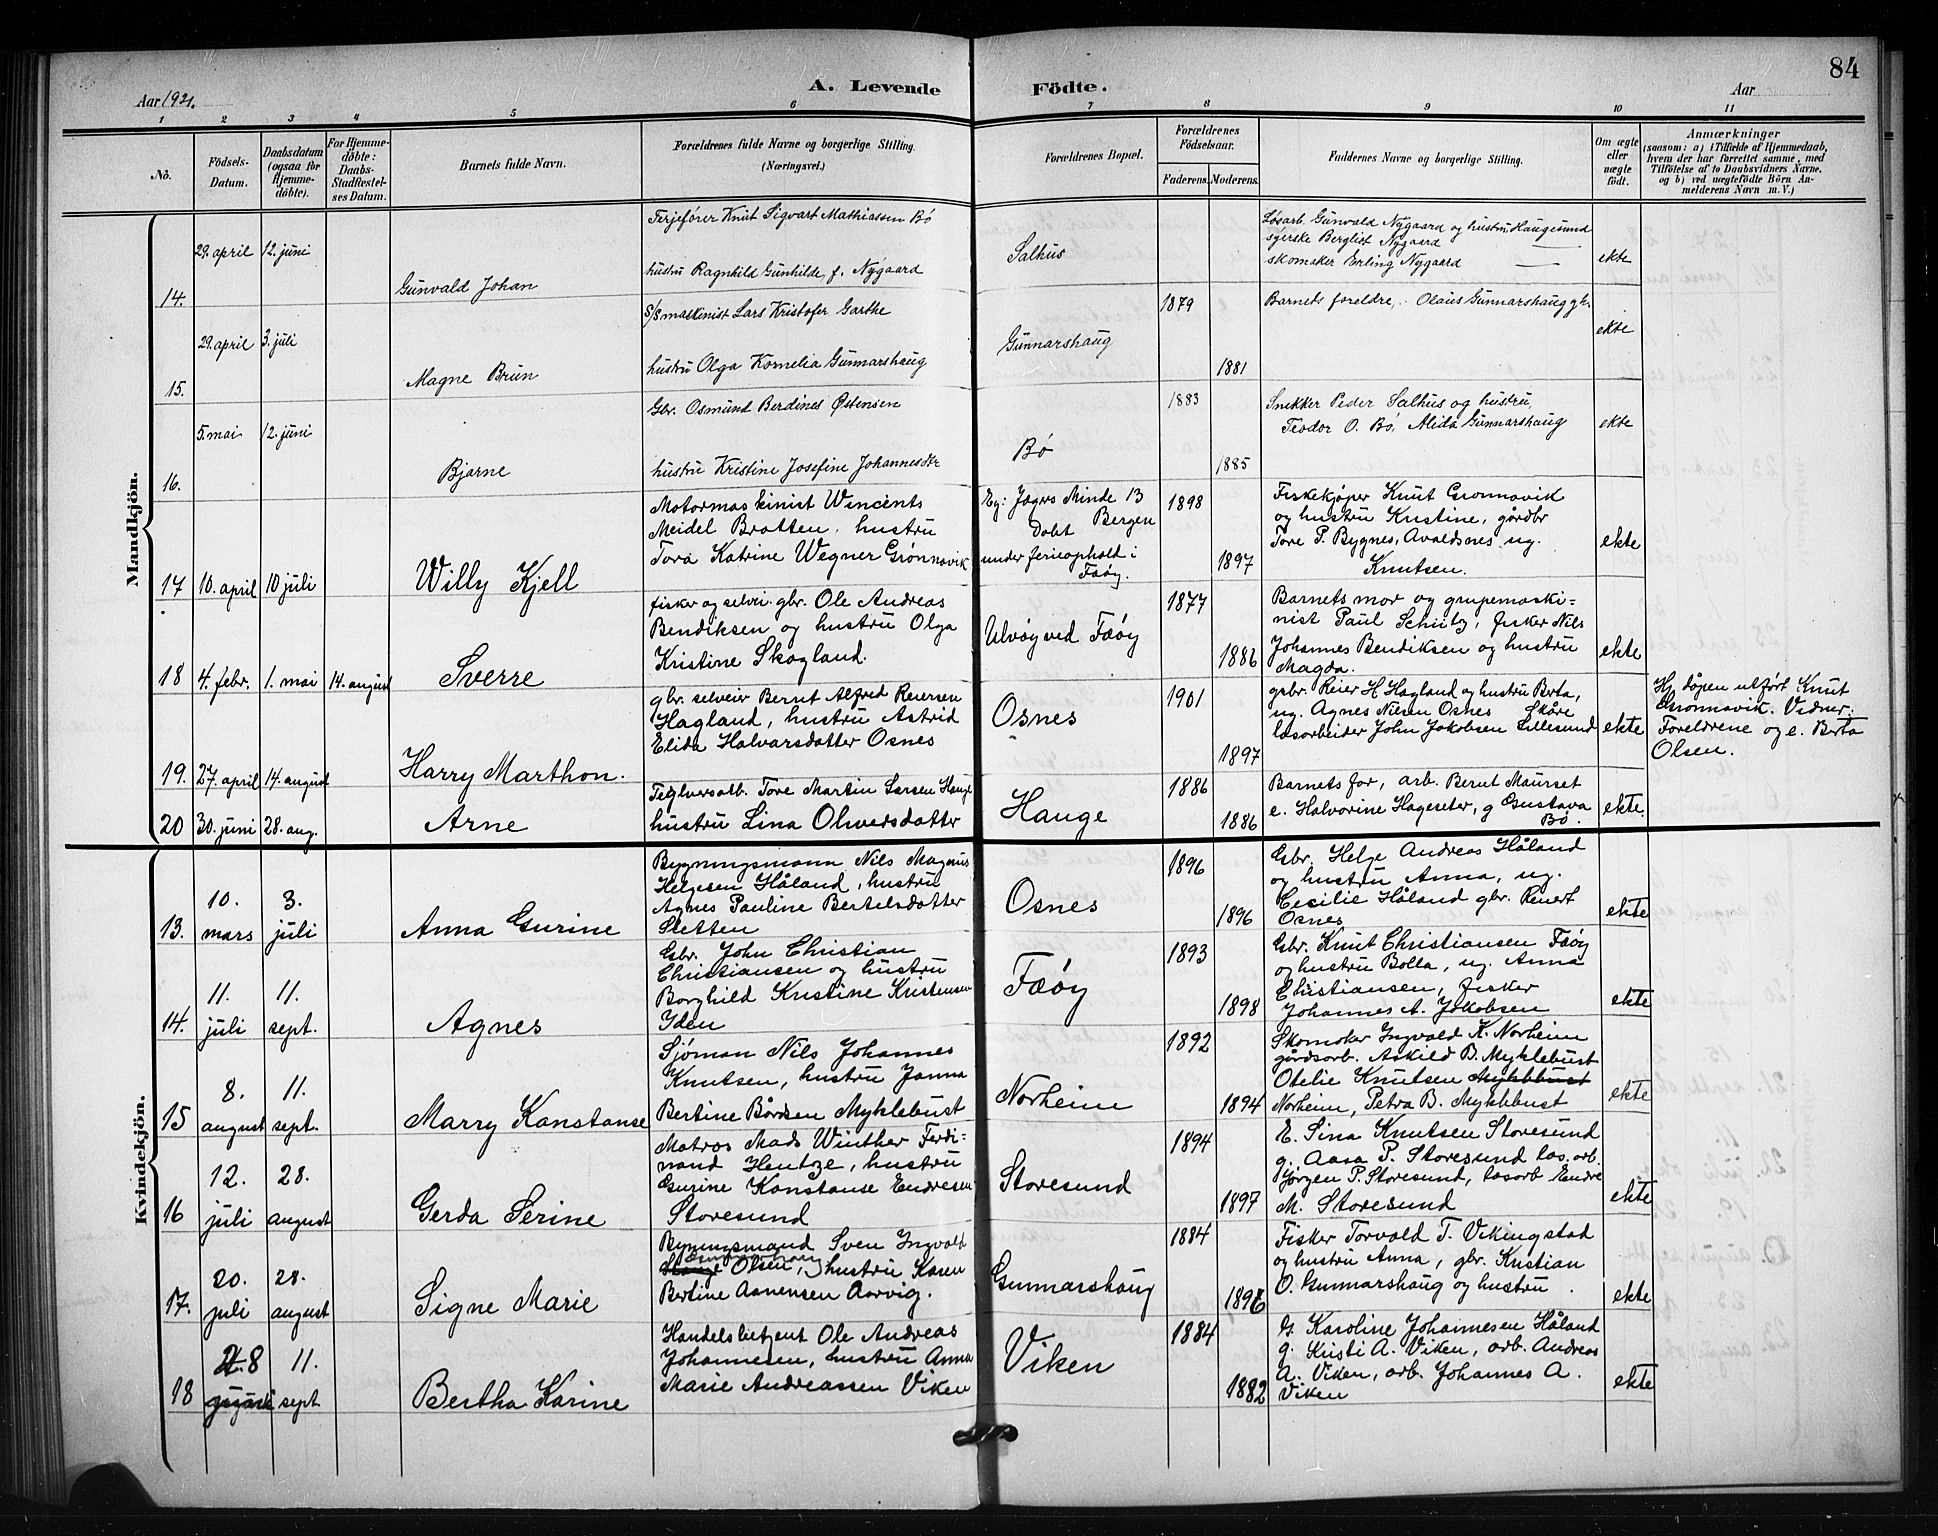 84
Aar 1921.
A. Levende
Födte.
Aar
1 2 3 4 5 6 7 8 9 10 11
No.
Födsels-
Datum.
Daabsdatum
(ogsaa for
Hjemme-
döbte).
For Hjemme-
döbte:
Daabs-
Stadfæstel-
ses Datum.
Barnets fulde Navn.
Forældrenes fulde Navne og borgerlige Stilling.
(Næringsvei.)
Forældrenes Bopæl.
Forældrenes
Födselsaar.
Faderens.
Moderens.
Faddernes Navne og borgerlige Stilling.
Om ægte
eller
uægte
födt.
Anmærkninger
(saasom: a) i Tilfælde af Hjemmedaab,
hvem der har forrettet samme, med
Tilföielse af to Daabsvidners Navne,
og b) ved uægtefödte Börn An-
melderens Navn m. V.)
Mandkjön.
14.
29. april
12. juni
Gunvald Johan
Ferjefører Knut Sigvart Mathiassen Bö
hustru Ragnhild Gunhilde, f. Nygaard
Salhus
Løsarb. Gunvald Nygaard og hustru Haugesund
syerske Bergliot Nygaard
skomaker Erling Nygaard
ekte
15.
29. april
3. juli
Magne Brun
S/S maskinist Lars Kristofer Garthe
hustru Olga Kornelia Gunnarshaug
Gunnarshaug
1879
1881
Barnets foreldre, Olaus Gunnarshaug gb.
ekte
16.
5. mai
12. juni
Bjarne
Gbr. Osmund Berdines Østensen
hustru Kristine Josefine Johannesdtr
Bö
1883
1885
Snekker Peder Salhus og hustru,
Teodor O. Bö, Alida Gunnarshaug
ekte
17
10. april
10 juli
Willy Kjell
Motormaskinist Wincents
Meidel Bratten, hustru
Tora Katrine Wegner Grönnavik
Eg: Jægers Minde 13
Döbt Bergen
under ferieophold i
Fæöy.
1898
1897
Fiskekjøper Knut Grønnavik
og hustru Kristine, gårdbr
Tore P. Bygnes, Avaldsnes ug.
Knutsen.
ekte
18
4. febr.
1. mai
14. august
Sverre
fisker og selvei. gbr. Ole Andreas
Bendiksen og hustru Olga
Kristine Skogland.
Ulvöy ved Fæöy
1877
1886
Barnets mor og grupemaski=
nist Paul Schütz, fisker Nils
Johannes Bendiksen og hustru
Magda.
ekte
Hj. dåpen utført Knut
Grønnavik. Vidner:
Foreldrene og e. Berta
Olsen.
19.
27. april
14. august
Harry Marthon.
gbr. selveir Bernt Alfred Reiersen
Hagland, hustru Astrid
Elida Halvarsdatter Osnes
Osnes
1901
1897
gbr. Reier H Hagland og hustru Berta,
ug. Agnes Nilsen Osnes Skåre
løsarbeider John Jakobsen Lillesund
ekte
20
30. juni
28. aug.
Arne
Teglversarb. Tore Martin Larsen Hauge
hustru Lina Oliversdatter
Hauge
1886
1886
Barnets far, arb. Bernt Maurset
e. Halvorine Hageseter, g Gustava
Bö.
ekte.
Kvindekjön.
13.
10.
mars
3.
juli
Anna Gurine
Bygningsmann Nils Magnus
Helgesen Håland, hustru
Agnes Pauline Bertelsdatter
Sletten
Osnes
1896
1896
Gbr. Helge Andreas Håland
og hustru Anna, ug.
Cecilie Håland gbr. Reiert
Osnes
ekte
14.
11.
juli
11.
sept.
Agnes
Gbr. John Christian
Christiansen og hustru
Borghild Kristine Kristensen
Yden
Fæöy
1893
1898
Gbr. Knut Christiansen Fæöy
og hustru Bolla, ug. Anna
Christiansen, fisker
Johannes A. Jakobsen
ekte
15
8.
august
11.
sept.
Marry Konstanse
Sjöman Nils Johannes
Knutsen, hustru Janna
Bertine Bårdsen Myklebust
Norheim
1892
1894
Skomaker Ingvald K. Norheim
gårdsarb. Askild B. Myklebust
Otelie Knutsen Myklebust
Norheim, Petra B. Myklebust
ekte
16
12.
juli
28.
august
Gerda Serine
Matros Mads Winther Ferdi=
nand Hentze, hustru
Gurine Konstanse Endresen
Storesund
Storesund
1894
1897
E. Sina Knutsen Storesund
g. Aasa P. Storesund løs.arb.
Jörgen P. Storesund, løsarb Endre
M. Storesund
ekte
17.
20.
juli
28.
august
Signe Marie
Bygningsmand Sven Ingvald
Gunnarshaug
Olsen, hustru Karen
Bertine Asnensen Aarvig.
Gunnarshaug
1884
1896
Fisker Torvald T. Vikingstad
og hustru Anna, gbr. Kristian
O. Gunnarshaug og hustru.
ekte
18
8
11.
sept.
Bertha Karine
Handelsbetjent Ole Andreas
Johannesen, hustru Anna
Marie Andreassen Viken
Viken
1884
1882
G. Karoline Johannesen Håland
g. Kristi A. Viken, arb. Andreas
A. Viken, arb. Johannes A.
Viken
ekte